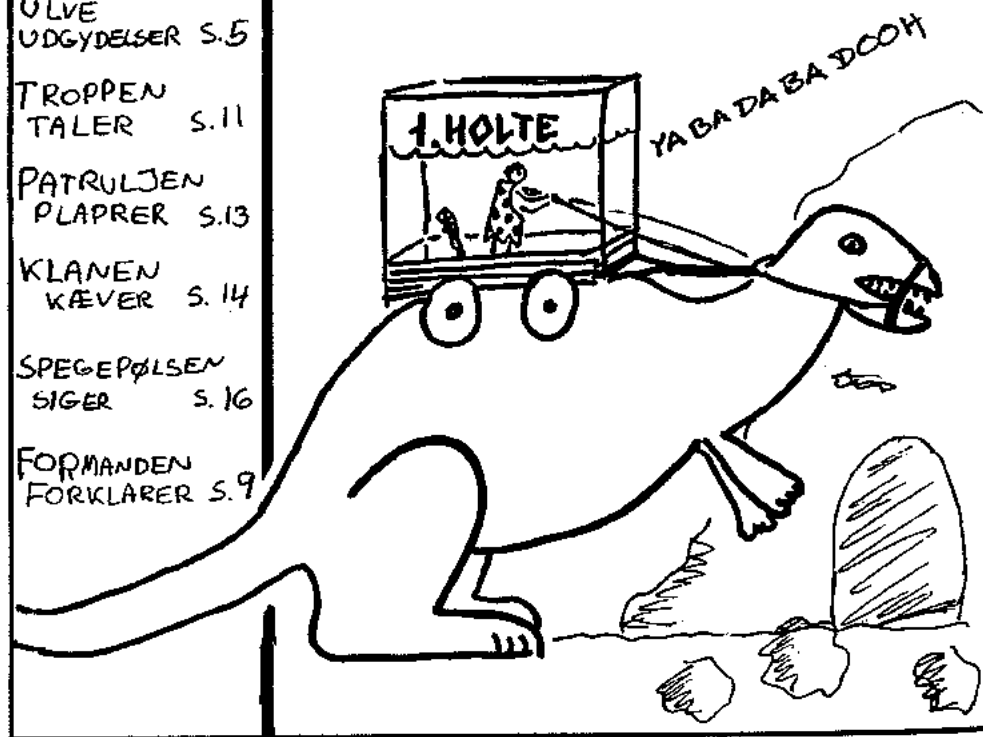 ULVE
UDGYDELSER S.5
TROPPEN
TALER S.11
PATRULJEN
PLAPRER S.13
KLANEN
KÆVER S.14
SPEGEPØLSEN
SIGER S.16
FORMANDEN
FORKLARER S.9
1. HOLTE
YA BA DA BA DOOH